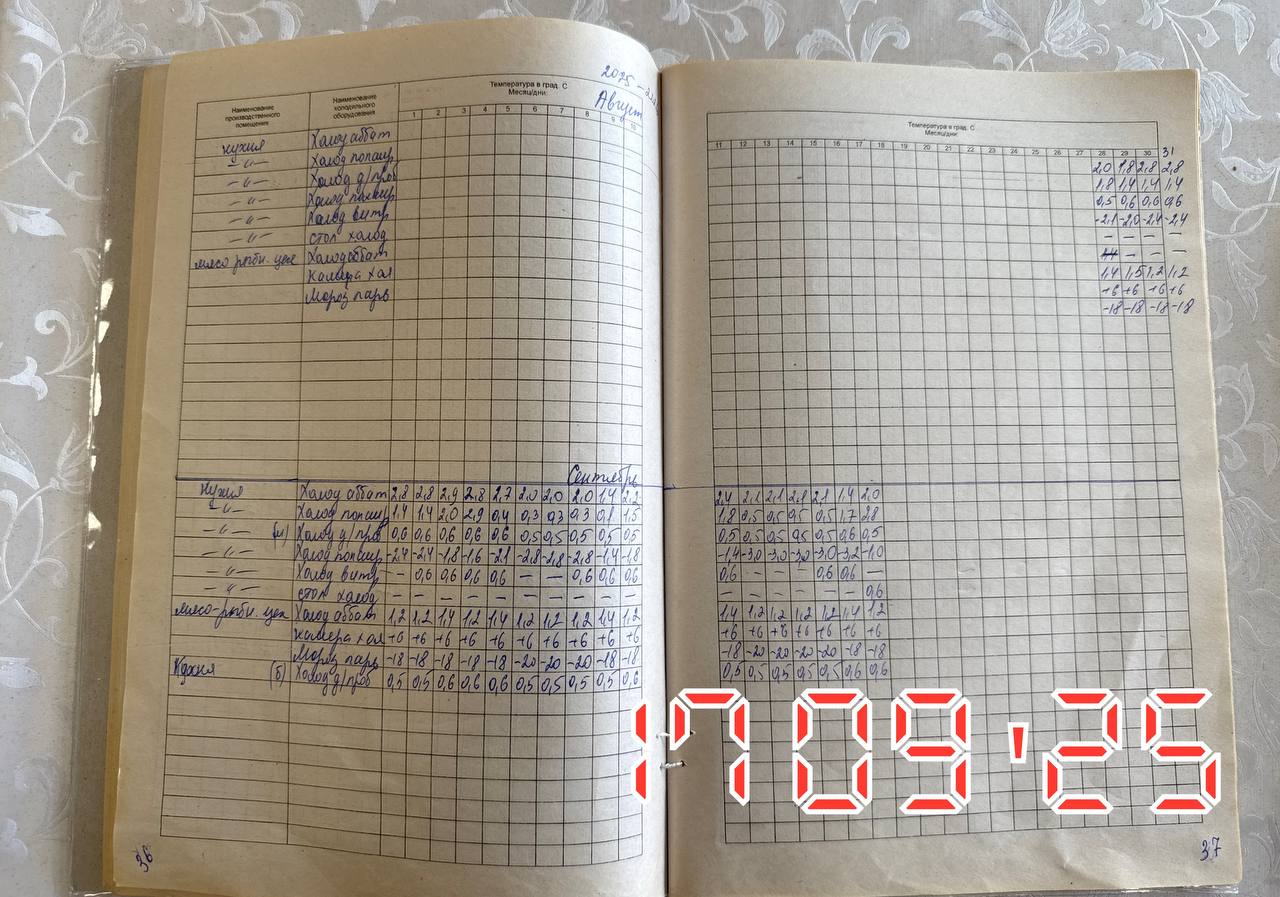 2025 –
Август
Температура в град. С
Месяц/дни:
Наименование производственного помещения
Наименование холодильного оборудования
1 2 3 4 5 6 7 8 9 10
кухня Холод аббат
–"– Холод
–"– Холод д/проб
–"– Холод
–"– Холод витр
–"– стол холод
мясо рыбн. цех Холод аббат
камера хол
Мороз парв
Сентябрь
кухня Холод аббат 2,8 2,8 2,9 2,8 2,7 2,0 2,0 2,0 1,4 2,2
–"– Холод 1,4 1,4 2,0 2,9 0,4 0,3 0,3 0,3 0,1 1,5
–"– (м) Холод д/проб 0,6 0,6 0,6 0,6 0,6 0,5 0,5 0,5 0,5 0,5
–"– Холод -2,4 -2,4 -1,8 -1,6 -2,1 -2,8 -2,8 -2,8 -1,4 -1,8
–"– Холод витр – 0,6 0,6 0,6 0,6 – – 0,6 0,6 0,6
–"– стол холод – – – – – – – – – –
мясо-рыбн. цех Холод аббат 1,2 1,2 1,4 1,2 1,4 1,2 1,2 1,2 1,4 1,2
камера хол +6 +6 +6 +6 +6 +6 +6 +6 +6 +6
Мороз парв -18 -18 -18 -18 -18 -20 -20 -20 -18 -18
Кухня (б) Холод д/проб 0,5 0,5 0,6 0,6 0,6 0,5 0,5 0,5 0,5 0,6
36
Температура в град. С
Месяц/дни:
11 12 13 14 15 16 17 18 19 20 21 22 23 24 25 26 27 28 29 30 31
2,0 1,8 2,8 2,8
1,8 1,4 1,4 1,4
0,5 0,6 0,6 0,6
-2,1 -2,0 -2,4 -2,4
– – – –
– – –
1,4 1,5 1,2 1,2
+6 +6 +6 +6
-18 -18 -18 -18
2,4 2,1 2,1 2,1 2,1 1,4 2,0
1,8 0,5 0,5 0,5 0,5 1,7 2,8
0,5 0,5 0,5 0,5 0,5 0,6 0,5
-1,4 -3,0 -3,0 -3,0 -3,0 -3,2 -1,0
0,6 – – – 0,6 0,6 –
– – – – – – 0,6
1,4 1,2 1,2 1,2 1,2 1,4 1,2
+6 +6 +6 +6 +6 +6 +6
-18 -20 -20 -20 -20 -18 -18
0,5 0,5 0,5 0,5 0,5 0,6 0,6
37
17 09 '25